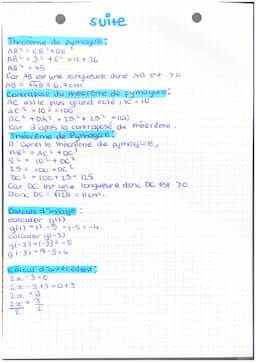 suite
Théorème de pythagore :
AB² = CB² + OC²
AB² = 3² + 6² = 9 + 36
AB² = 45
Car AB est une longueure donc AB est > 0
AB = √45 ≈ 6,7cm
Contraposé du théorème de pythagore :
AC est le plus grand coté ; AC = 10
AC² = 10² = 100
OC² + OA² = 25² + 25² ≠ 100
Car d'après la contraposé du théorème.
Théorème de Pythagore :
D'après le théorème de pythagore,
AB² = AC² + DC²
5² = 10² + DC²
25 = 100 + DC²
DC² = 100 + 25 = 125
Car DC est une longueure donc DC est > 0
Donc DC = √125 ≈ 11cm.
Calculs d'image :
calculer g(1)
g(1) = 1² - 5 = 1 - 5 = -4
calculer g(-3)
g(-3) = (-3)² - 5
g(-3) = 9 - 5 = 4
Calcul d'antécédent :
2x - 3 = 0
2x - 3 + 3 = 0 + 3
2x = 3
2x = 3
2 2